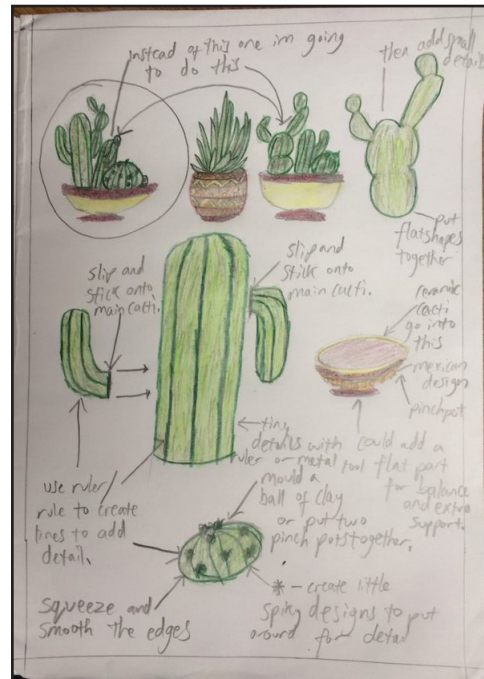 instead of this one im going
to do this
then add small
details
put
flat shapes
together
slip and
stick onto
main cacti.
slip and
stick onto
main cacti.
ceramic
cacti
go into
this
mexican
design
pinch pot
tiny
details with
ruler or metal tool
could add a
flat part
for balance
and extra
support.
use ruler/
rule to create
lines to add
detail.
mould a
ball of clay
or put two
pinch pots together.
squeeze and
smooth the edges
* - create little
spiky designs to put
around for detail